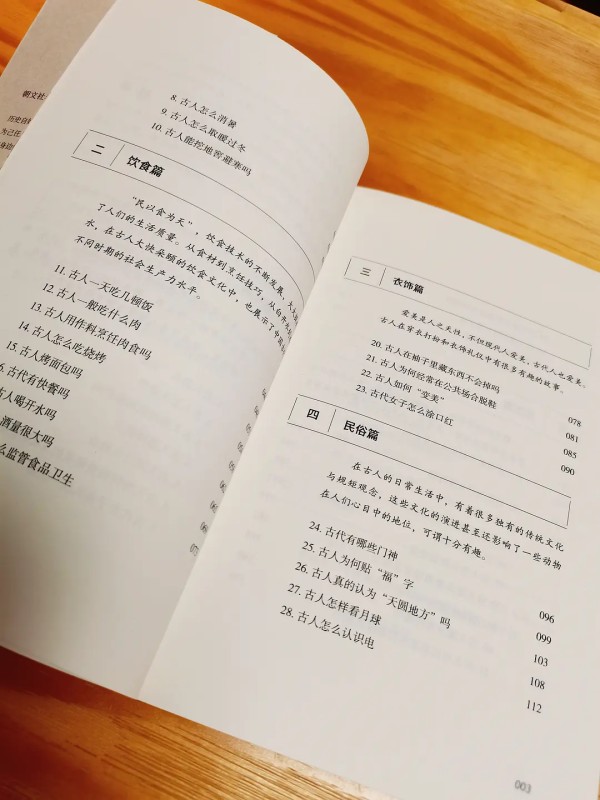 朝文社
历史容
为己任
身边
8. 古人怎么消暑
9. 古人怎么取暖过冬
10. 古人能挖地窖避寒吗
二 饮食篇
“民以食为天”，饮食技术的不断发展，大大
了人们的生活质量。从食材到烹饪技巧，从白开
水，在古人大快朵颐的饮食文化中，也展示了中国
不同时期的社会生产力水平。
11. 古人一天吃几顿饭
12. 古人一般吃什么肉
13. 古人用作料烹饪肉食吗
14. 古人怎么吃烧烤
15. 古人烤面包吗
6. 古代有快餐吗
古人喝开水吗
酒量很大吗
么监管食品卫生
三 衣饰篇
爱美是人之天性，不但现代人爱美，古代人也爱美。
古人在穿衣打扮和衣饰礼仪中有很多有趣的故事。
20. 古人在柚子里藏东西不会掉吗 078
21. 古人为何经常在公共场合脱鞋 081
22. 古人如何“变美” 085
23. 古代女子怎么涂口红 090
四 民俗篇
在古人的日常生活中，有着很多独有的传统文化
与规矩观念，这些文化的演进甚至还影响了一些动物
在人们心目中的地位，可谓十分有趣。
24. 古代有哪些门神 096
25. 古人为何贴“福”字 099
26. 古人真的认为“天圆地方”吗 103
27. 古人怎样看月球 108
28. 古人怎么认识电 112
003